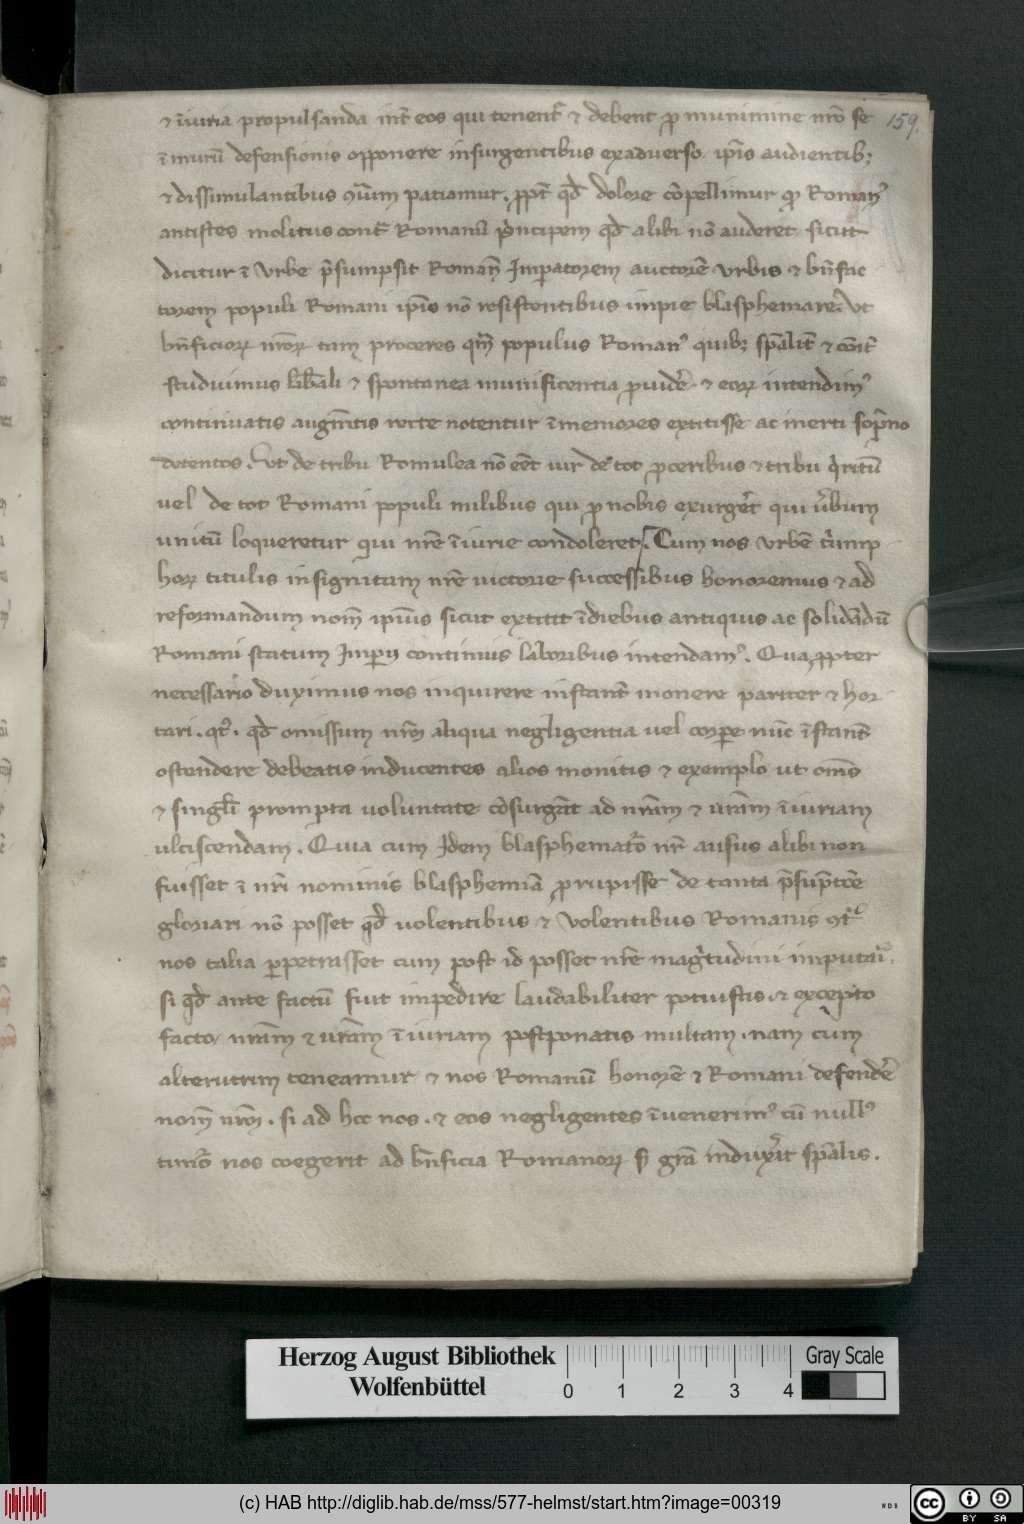 159.
⁊ īiuria propulsanda int̄ eos qui tenent᷑ ⁊ debent ꝓ munimine nr̄o se
ī murū defensionis opponere insurgentibus exaduerso. ip̄is audientib;
⁊ dissimulantibus ꝯtūm patiamur. ꝓpt̄ qd̄ dolore cōpellimur qꝛ Romanꝰ
antistes molitus cont͛ Romanū p͛ncipem qd̄ alibi nō auderet. sicut
dicitur ī vrbe p̄sumpsit Roman̄ Imꝑatorem auctorē vrbis ⁊ bn̄fac
torem populi Romani ip̄is nō resistentibus impie blasphemare. Vt
bn̄ficioꝝ nr̄oꝝ tam proceres qm̄ populus Romanꝰ quib; sp̄alit̄ ⁊ cōit̄
studuimus lib̄ali ⁊ spontanea munificentia ꝓuidē͛ ⁊ eoꝝ intendimꝰ
continuatis augm̄tis recte notentur īmemores extitisse ac inerti sop̄no
detentos. Vt de tribu Romulea nō eēt uir de tot ꝓceribus ⁊ tribu q͛ritū
vel de tot Romani populi milibus qui ꝓ nobis exurḡet qui ūbum
unitū loqueretur qui nr̄e īiurie condoleret. Cum nos vrbē t͛ump
hoꝝ titulis insignitam nr̄e uictorie successibus honoremus ⁊ ad
reformandum nom̄ ip̄ius sicut extitit ī diebus antiquis ac solidādū
Romani statum Imꝑij continuis laboribus intendamꝰ. Qua ꝓpter
necessario duximus nos inquirere instant̄ monere pariter ⁊ hor
tari. qt̓. qd̄ omissum nr̄m aliqua negligentia uel corꝑe nūc īstant̄
ostendere debeatis inducentes alios monitis ⁊ exemplo ut om̄s
⁊ singl̄i prompta voluntate cōsurgāt ad nr̄am ⁊ ur̄am īiuriam
ulciscendam. Quia cum Idem blasphemat͛o nr̄ ausus alibi non
fuisset ī nr̄i nominis blasphemiā ꝓrupisse de tanta p̄sūpt̄oē
gloriari nō posset qd̄ uolentibus ⁊ volentibus Romanis ꝯt͛
nos talia ꝑpetrasset cum post id posset nr̄e mag͛tudini imputari.
si qd̄ ante factū fuit impedire laudabiliter potuistis. ⁊ excepto
facto nr̄am ⁊ ur̄am īiuriam postponatis multam. nam cum
alterutrim teneamur ⁊ nos Romanū honorē ⁊ Romani defendē͛
nom̄ nr̄m. si ad hec nos. ⁊ eos negligentes īuenerimꝰ cū nullꝰ
timo͛ nos coegerit ad bn̄ficia Romanoꝝ s; gr̄a induxerit sp̄alis.
Herzog August Bibliothek
Wolfenbüttel
0 1 2 3 4
Gray Scale
(c) HAB http://diglib.hab.de/mss/577-helmst/start.htm?image=00319
WDB
cc BY SA